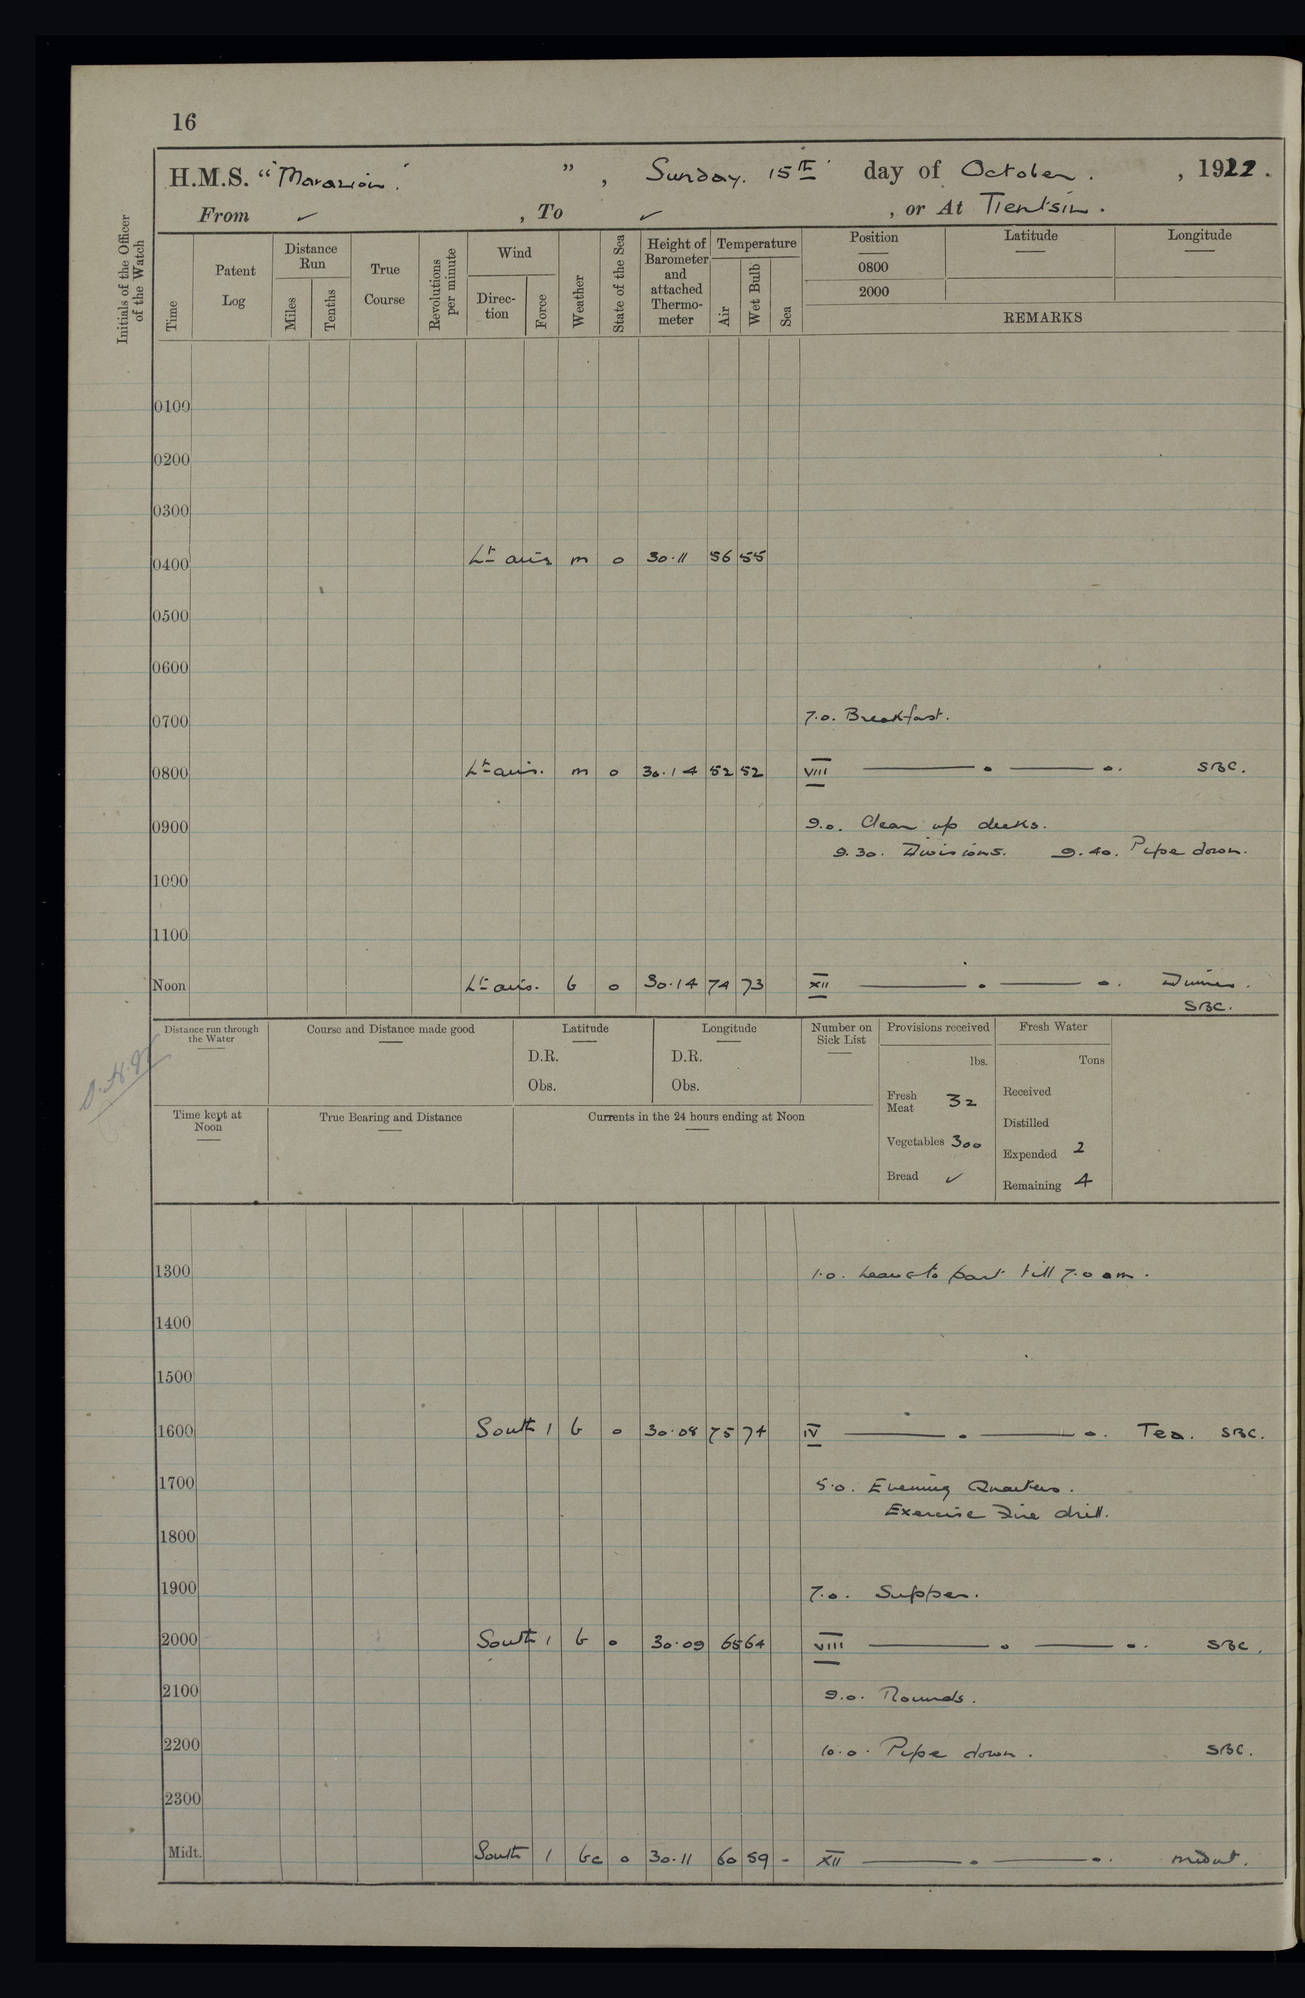 16
H.M.S. "Marazion." ", Sunday. 15th day of October. , 1922.
From ✓ , To ✓ , or At Tientsin.
Initials of the Officer of the Watch
Time
Patent Log
Distance Run
Miles
Tenths
True Course
Revolutions per minute
Wind
Direc-tion
Force
Weather
State of the Sea
Height of Barometer and attached Thermo-meter
Temperature
Air
Wet Bulb
Sea
Position
0800
2000
Latitude
Longitude
REMARKS
0100
0200
0300
0400 Lt airs m o 30.11 56 55
0500
0600
0700 7.0. Breakfast.
0800 Lt airs. m o 30.14 52 52 VIII SBC.
0900 9.0. Clear up decks.
9.30. Divisions. 9.40. Pipe down.
1000
1100
Noon Lt airs. b o 30.14 74 73 XII Dinner.
SBC.
Distance run through the Water
Course and Distance made good
Latitude
D.R.
Obs.
Longitude
D.R.
Obs.
Number on Sick List
Provisions received
lbs.
Fresh Meat 32
Vegetables 300
Bread ✓
Fresh Water
Tons
Received
Distilled
Expended 2
Remaining 4
Time kept at Noon
True Bearing and Distance
Currents in the 24 hours ending at Noon
1300 1.0. Leave to part till 7.0 am.
1400
1500
1600 South 1 b o 30.08 75 74 IV Tea. SBC.
1700 5.0. Evening Quarters.
Exercise Fire drill.
1800
1900 7.0. Supper.
2000 South 1 b o 30.09 65 64 VIII SBC.
2100 9.0. Rounds.
2200 10.0. Pipe down. SBC.
2300
Midt. South 1 bc o 30.11 60 59 - XII